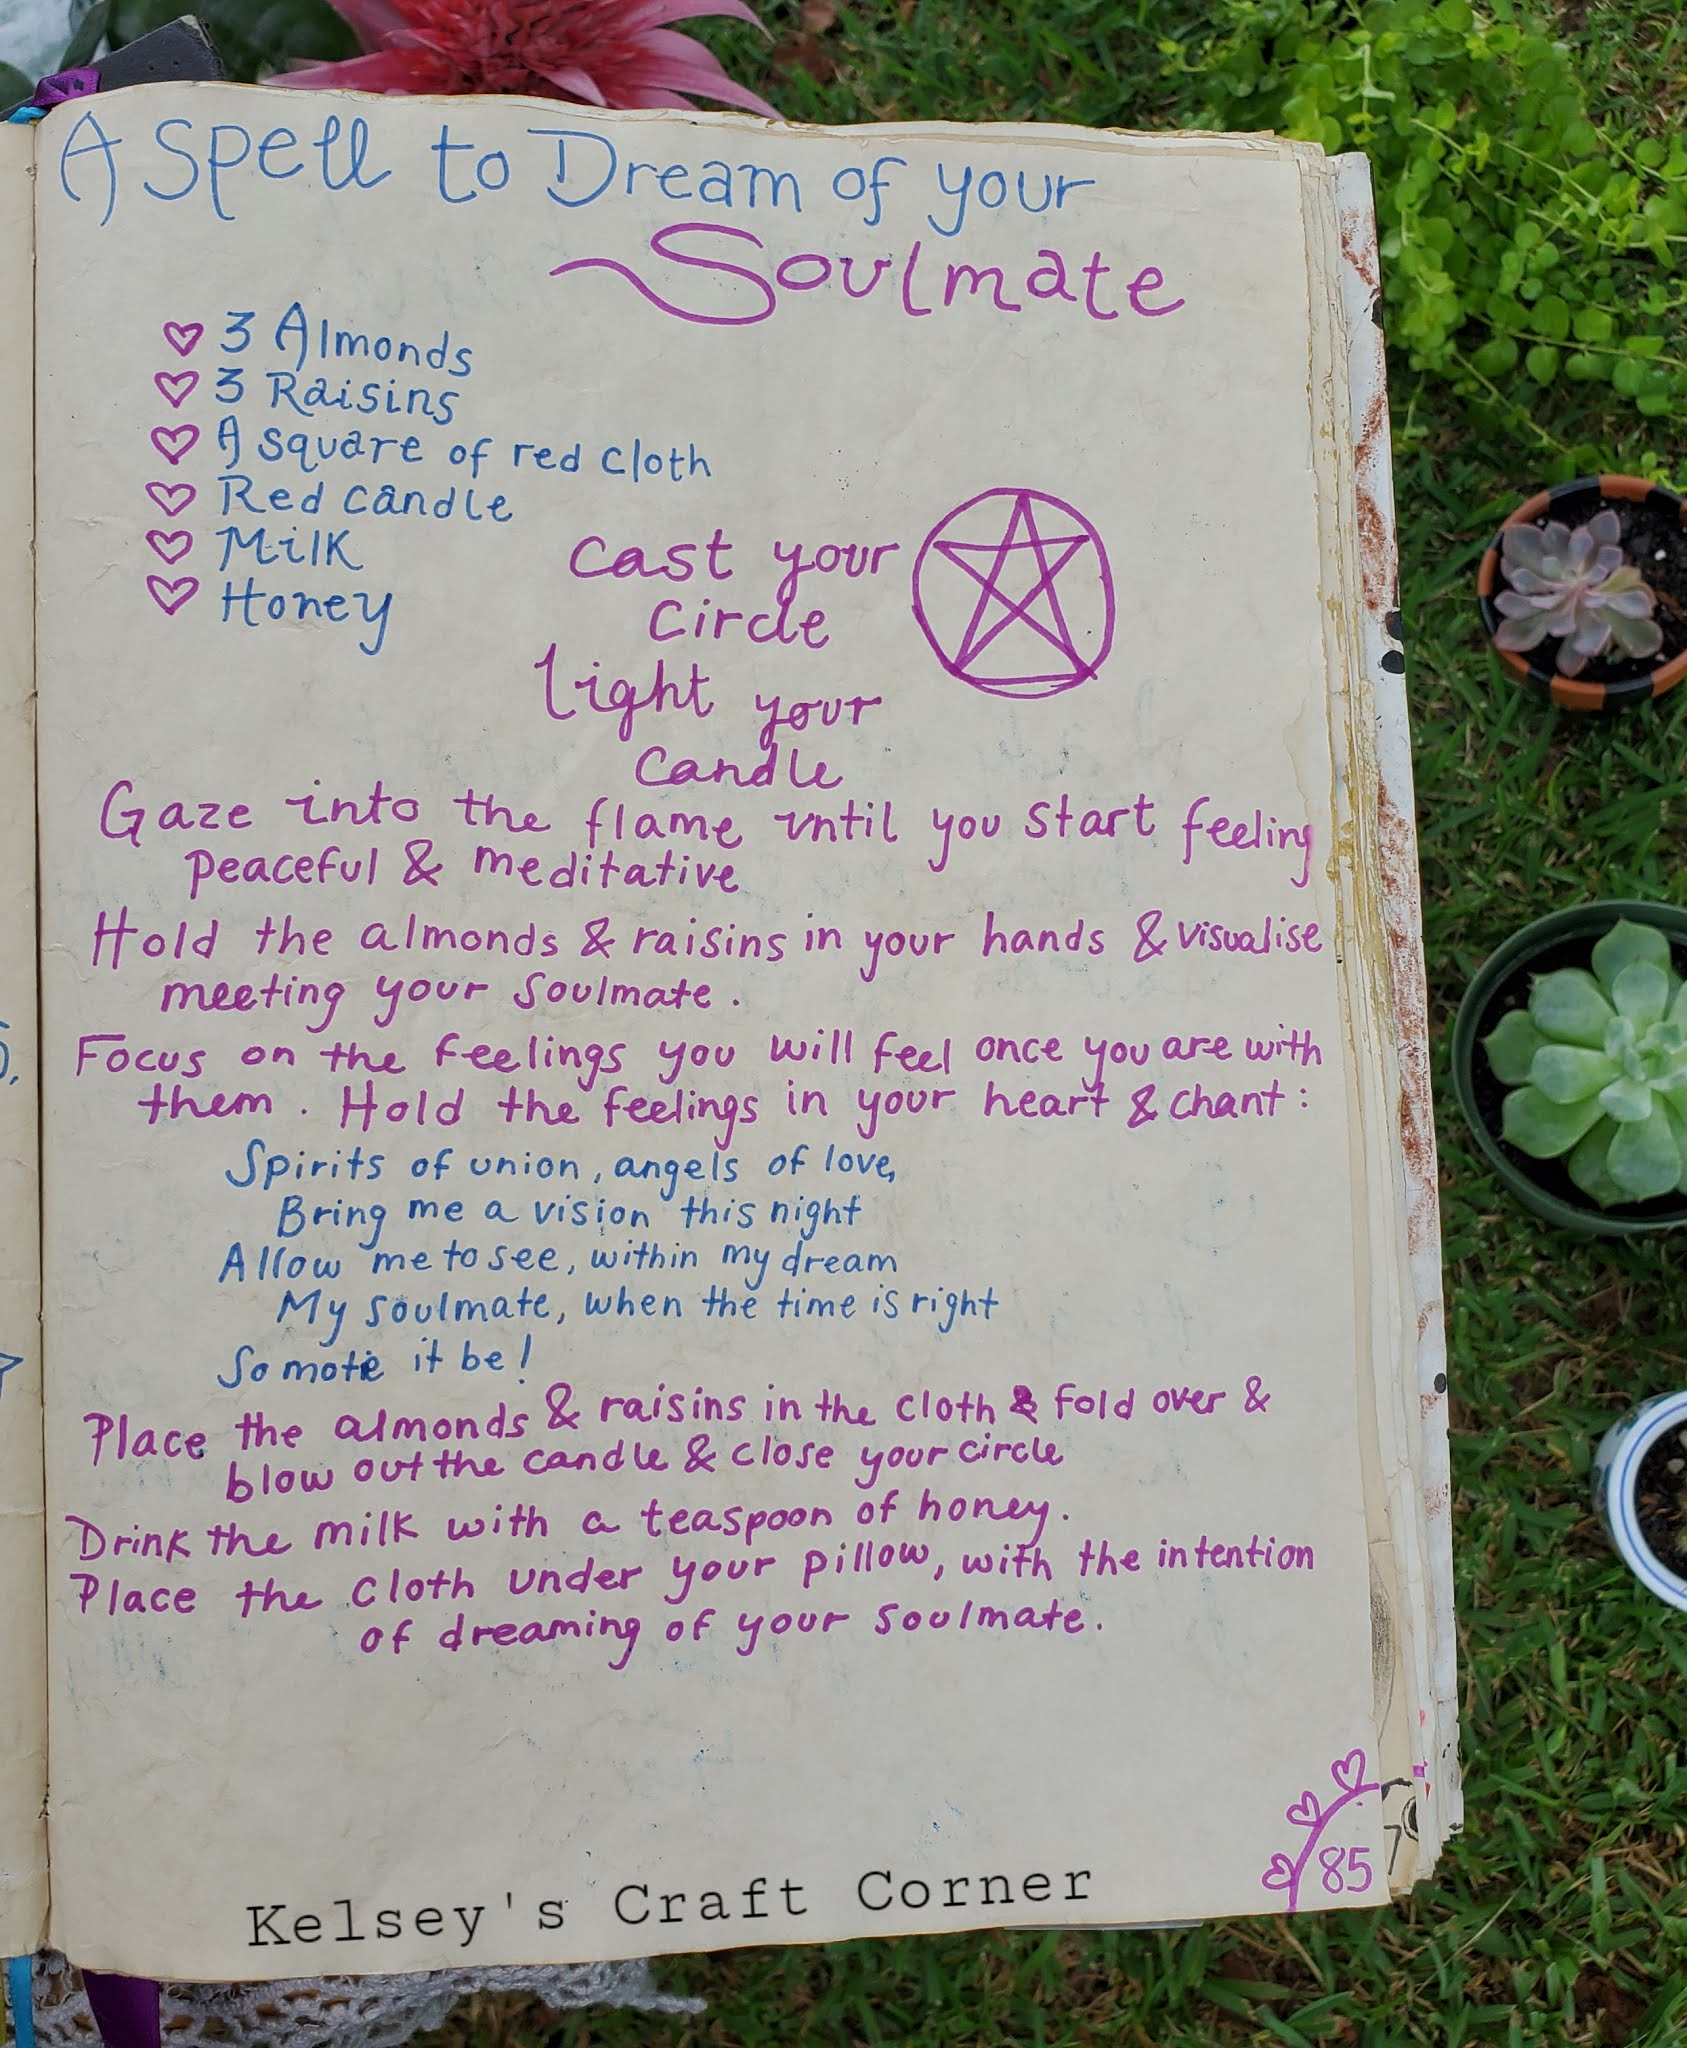 A Spell to Dream of your
Soulmate
3 Almonds
3 Raisins
A square of red cloth
Red candle
Milk
Honey
Cast your
Circle
Light your
Candle
Gaze into the flame until you start feeling
peaceful & meditative
Hold the almonds & raisins in your hands & visualise
meeting your soulmate.
Focus on the feelings you will feel once you are with
them. Hold the feelings in your heart & chant:
Spirits of union, angels of love,
Bring me a vision this night
Allow me to see, within my dream
My soulmate, when the time is right
So mote it be!
Place the almonds & raisins in the cloth & fold over &
blow out the candle & close your circle
Drink the milk with a teaspoon of honey.
Place the cloth under your pillow, with the intention
of dreaming of your soulmate.
85
Kelsey's Craft Corner